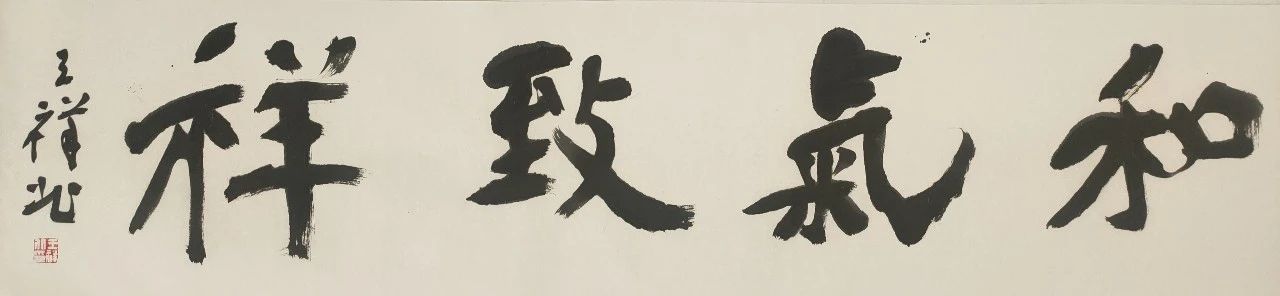 和氣致祥
王祥北